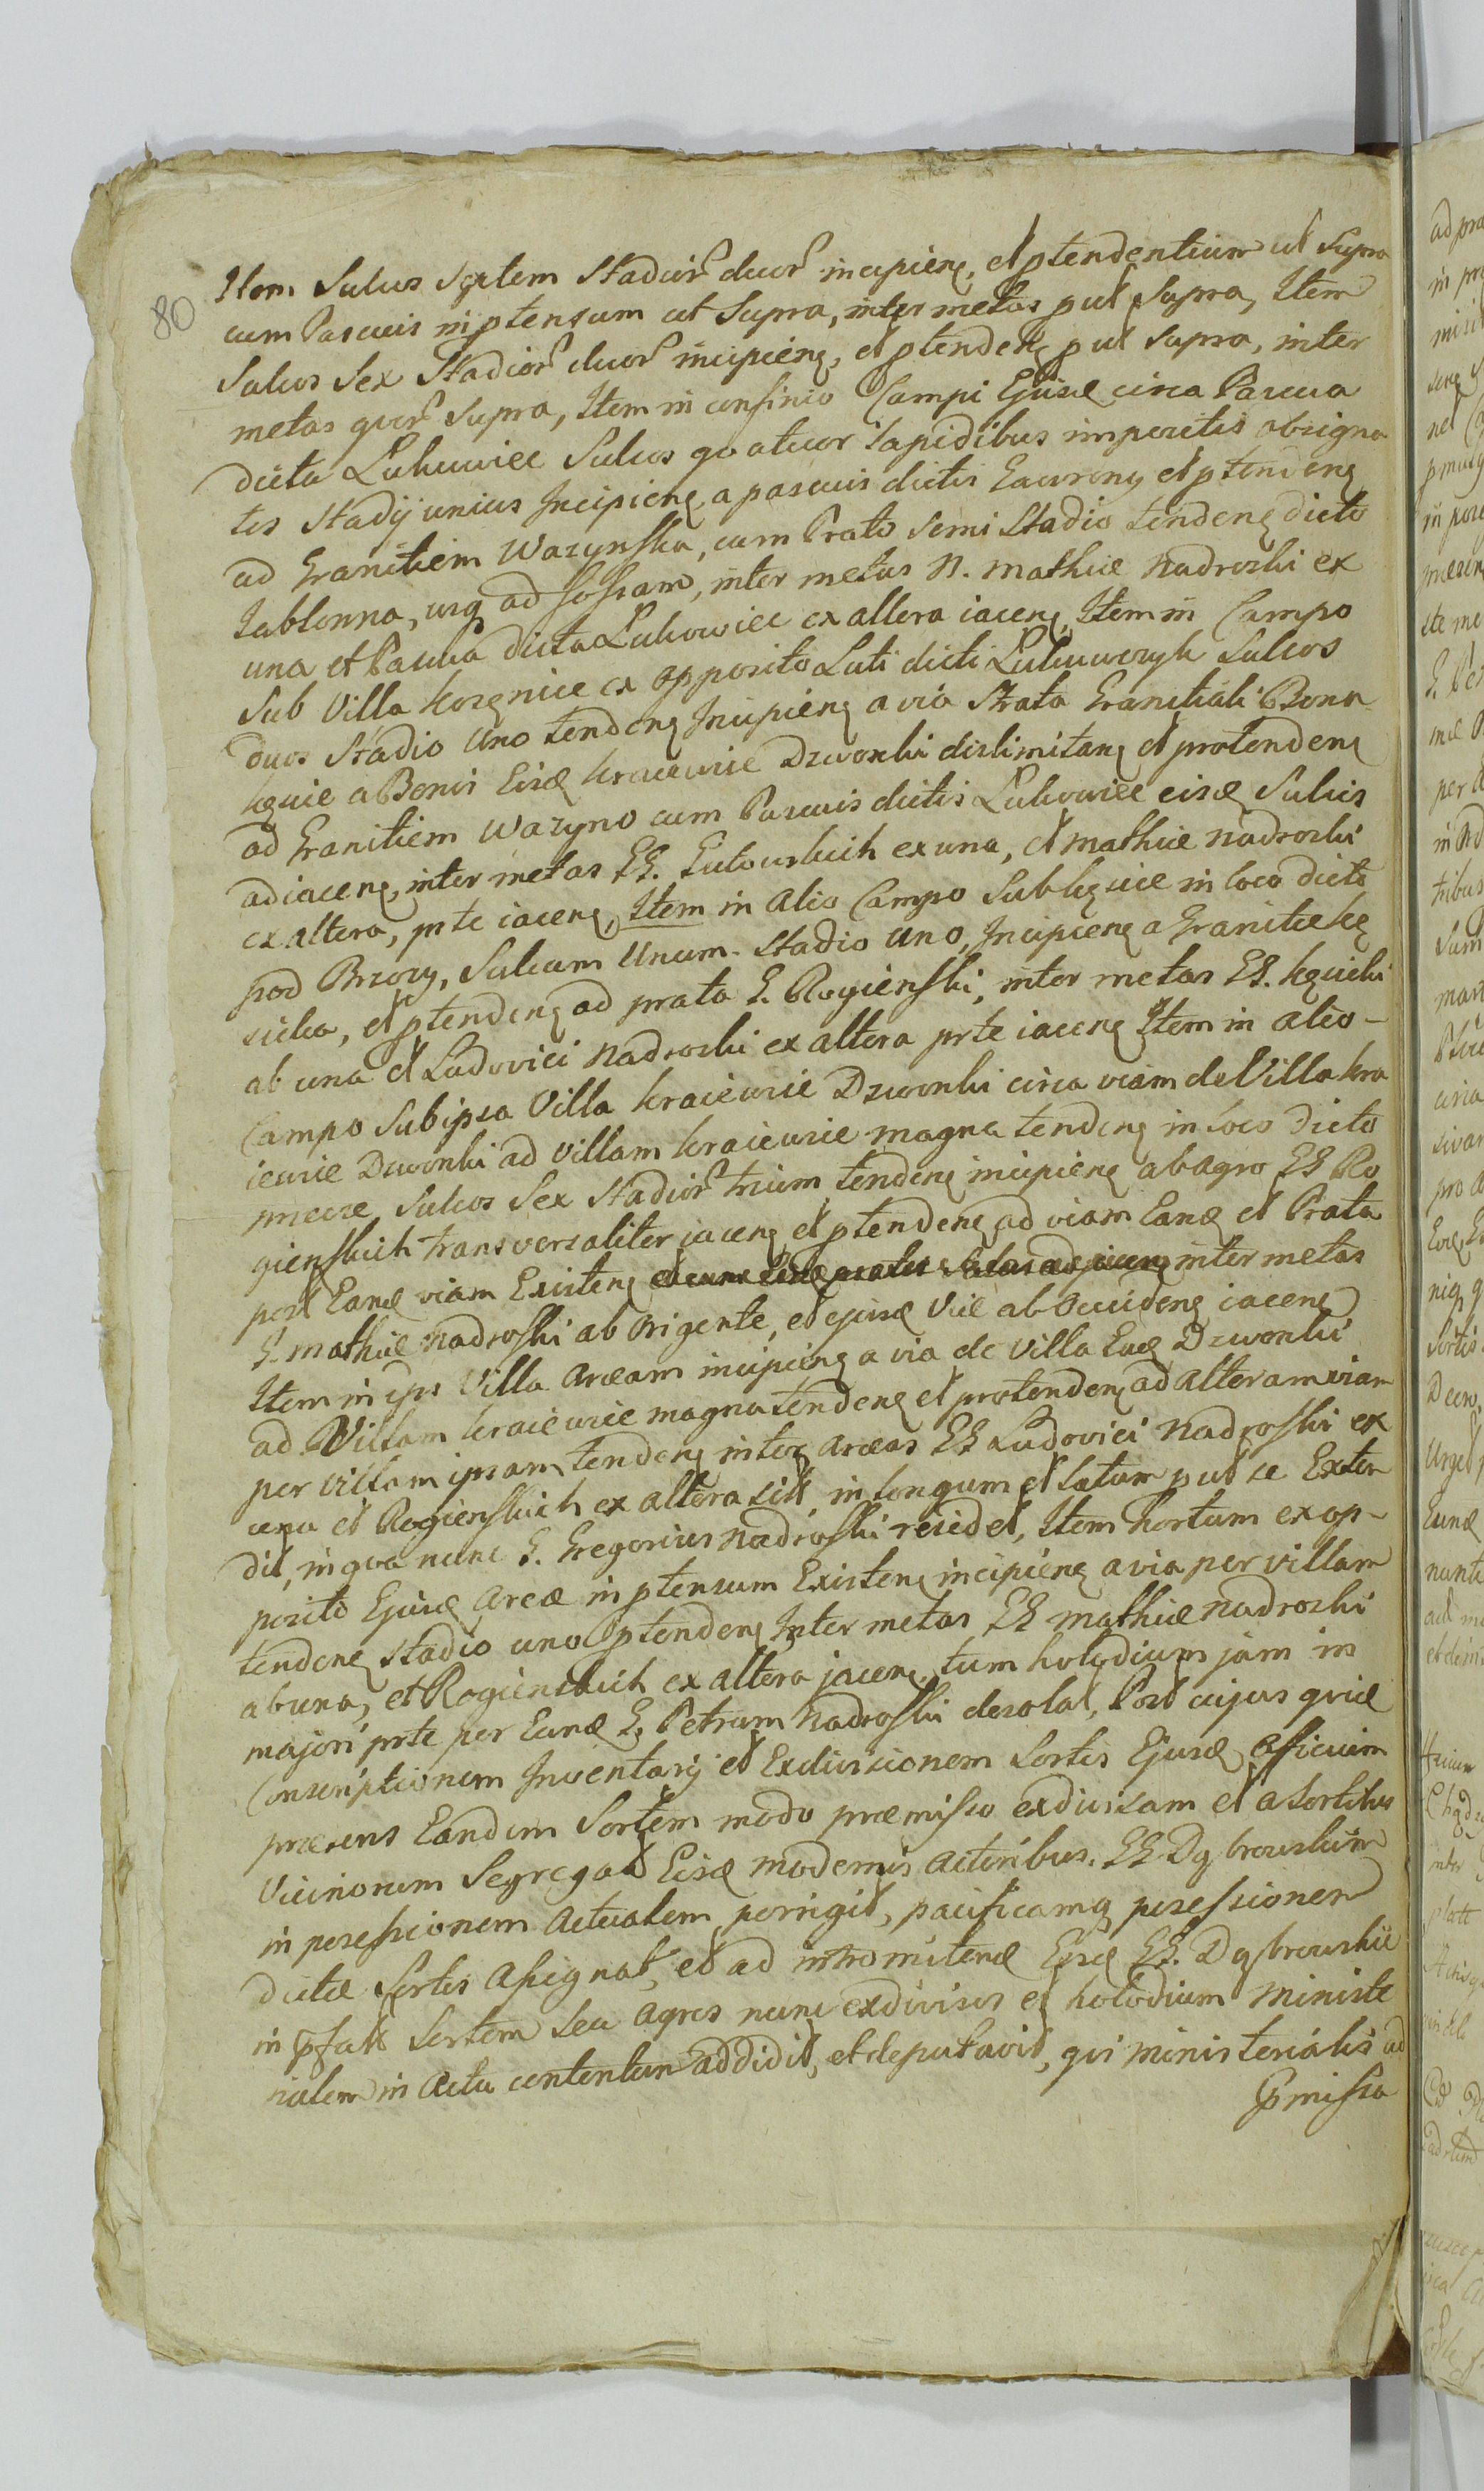 80
Item Sulcos Septem Stadior duor incipien, et ptendentium ut Supra
cum Pascuis in ptensum ut Supra, inter metas put Supra, Item
Sulcos Sex Stadior duor incipien, et ptenden put Supra, inter
metas quor Supra, Item in confinio Campi Ejusd circa Pascua
dicta Lukuwiec Sulcos quatuor lapidibus impositis obsigna
tos Stadij unius Incipien a pascuis dictis Gawrony et ptenden
ad Granitiem Wazynska, cum Prato Semi Stadio tenden dicto
Jablonna, usq ad fossam, inter metas N. Mathiæ Nadroski ex
una et Pascua dicta Lukowiec ex altera iacen, Item in Campo
Sub Villa Kosznice ex opposito Luti dicti Lukuwczyk Sulcos
duos Stadio Uno tenden Incipien a via Strata Granitiali Bona
Kęsice a Bonis Eisd Kraiewice Dzwonki dislimitan et protenden
ad Granitiem Wazyno cum Pascuis dictis Lukowiec eisd Sulcis
adiacen, inter metas GG. Gutowskich ex una, et Mathiæ Nadroski
ex altera, pte iacen, Item in alio Campo Sub Kęsice in loco dicto
pod Brzozy, Sulcum Unum Stadio uno, Incipien a Granitie Kę
sicka, et ptenden ad prata G. Rogienski, inter metas GG. Kęsicki
ab una et Ludovici Nadroski ex altera prte iacen Item in alio
Campo Sub ipsa Villa Kraiewice Dzwonki circa viam de Villa Kra
iewice Dzwonki ad Villam Kraiewice magna tenden in loco dicto
Sulcos Sex Stadior trium tenden incipien ab agro GG Ro
gienskich transversaliter iacen et ptenden ad viam Eand et Prata
post Eand viam Existen inter metas
G. Mathiæ Nadroski ab Origente, et ejusd Viæ ab Occiden iacen
Item in ips Villa Aream incipien a via de Villa Ead Dzwonki
ad Villam Kraiewice magna tenden et protenden ad alteram viam
per villam ipsam tenden inter Areas GG Ludovici Nadroski ex
una et Rogienskich ex altera sitt, in longum et latum put se Exten
dit, in qua nunc G. Gregorius Nadroski residet, Item hortum ex op-
posito Ejusd Areæ in ptensum Existen incipien a via per villam
tenden Stadio uno ptenden Inter metas GG Mathiæ Nadroski
ab una, et Rogienskich ex altera jacen, tum holodium jam in
majori prte per Eund G. Petrum Nadroski desolat, Post cujus quiæ
Conscriptionem Inventarij et Exdivisionem Sortis Ejusd Officium
præsens Eandem Sortem modo præmisso exdivisam et a Sortibus
Vicinorum Segregat Eisd modernis Actoribus GG Dąbrowskim
in possessionem Actualem porrigit, pacificamq possessionem
dictæ Sortis Assignat, et ad intromitend Eisd GG. Dąbrowskie
in pfatt Sortem seu agros nunc exdivisos et holodium Ministe
rialem in Actu contentum addidit, et deputavit, qui Ministerialis ad
pmissa